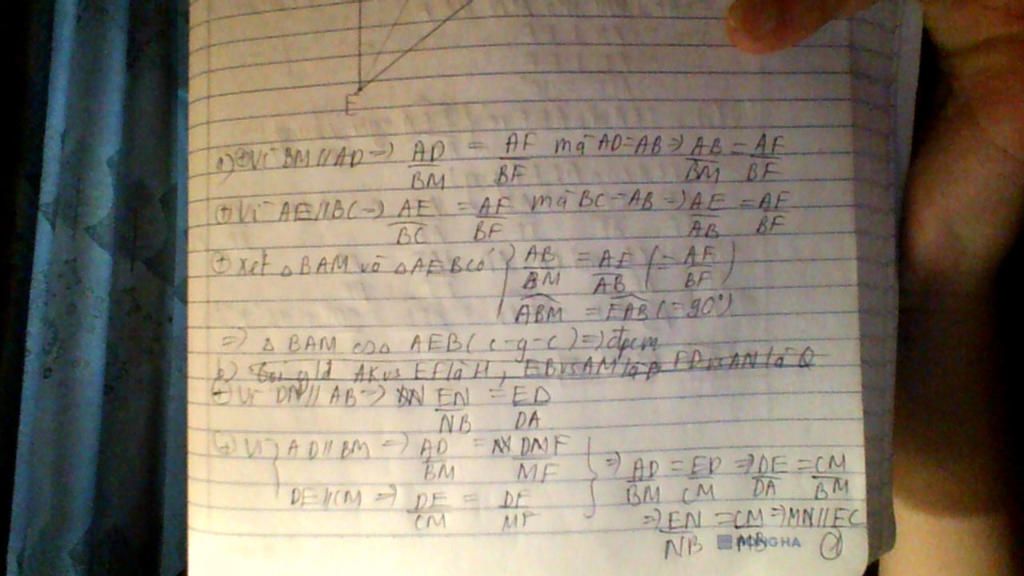 E
a) + Vì BM // AD => AD/BM = AF/BF mà AD = AB => AB/BM = AF/BF
+ Vì AE // BC => AE/BC = AF/BF mà BC = AB => AE/AB = AF/BF
+ xét △BAM và △AEB có { AB/BM = AE/AB (= AF/BF)
ABM = EAB (= 90°)
=> △ BAM ∽ △ AEB (c-g-c) => đpcm
b) Gọi gđ AK vs EF là H, EB vs AM là P FD vs AN là Q
+ Vì DN // AB => EN/NB = ED/DA
+ Vì { AD // BM => AD/BM = DMF/MF
DE // CM => DE/CM = DF/MF } => AD/BM = ED/CM => DE/DA = CM/BM
=> EN/NB = CM/MB => MN // EC (1)
HONGHA